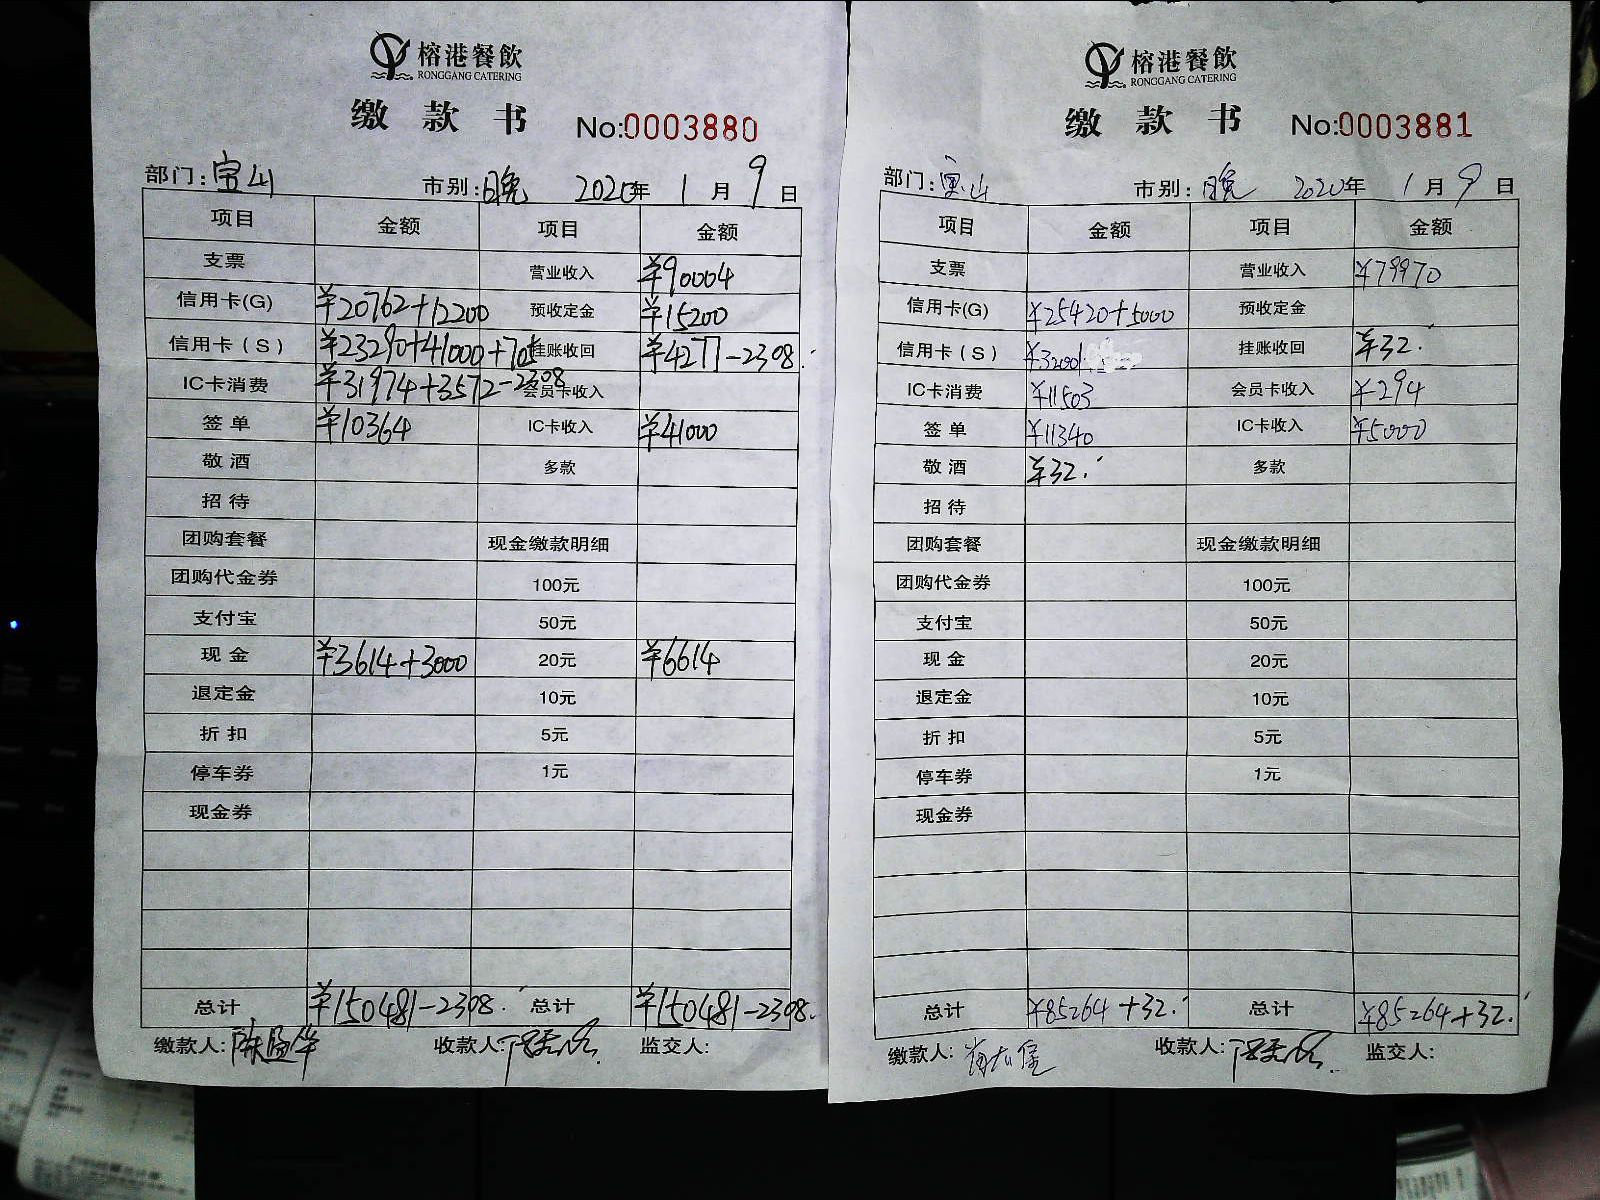 榕港餐飲
RONGGANG CATERING
缴款书 No:0003880
部门:宝山 市别:晚 2020年1月9日
项目 金额 项目 金额
支票 营业收入 ¥90004
信用卡(G) ¥20762+12200 预收定金 ¥15200
信用卡(S) ¥23290+41000+705 挂账收回 ¥4277-2308.
IC卡消费 ¥31974+3572-2308 会员卡收入
签单 ¥10364 IC卡收入 ¥41000
敬酒 多款
招待
团购套餐 现金缴款明细
团购代金券 100元
支付宝 50元
现金 ¥3614+3000 20元 ¥6614
退定金 10元
折扣 5元
停车券 1元
现金券
总计 ¥150481-2308. 总计 ¥150481-2308.
缴款人: 收款人: 监交人:
榕港餐飲
RONGGANG CATERING
缴款书 No:0003881
部门:宝山 市别:晚 2020年1月9日
项目 金额 项目 金额
支票 营业收入 ¥79970
信用卡(G) ¥25420+5000 预收定金
信用卡(S) ¥32001 挂账收回 ¥32.
IC卡消费 ¥11503 会员卡收入 ¥294
签单 ¥11340 IC卡收入 ¥5000
敬酒 ¥32. 多款
招待
团购套餐 现金缴款明细
团购代金券 100元
支付宝 50元
现金 20元
退定金 10元
折扣 5元
停车券 1元
现金券
总计 ¥85264+32. 总计 ¥85264+32.
缴款人: 收款人: 监交人: